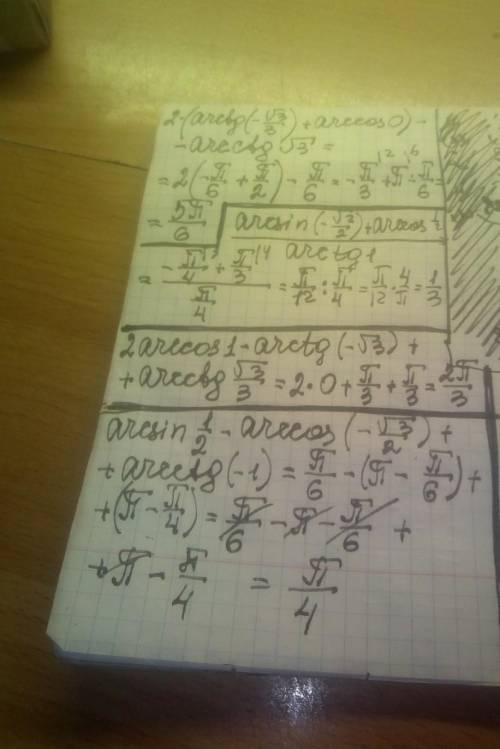 2·(arctg(-√3/3)+arccos0)-
-arcctg√3=
=2(-π/6+π/2)-π/6=-π/3+π-π/6=
=5π/6
arcsin(-√2/2)+arccos 1/2
arctg1
=(-π/4+π/3)/(π/4)=π/12:π/4=π/12·4/π=1/3
2arccos1-arctg(-√3)+
+arcctg √3/3=2·0+π/3+π/3=2π/3
arcsin 1/2-arccos(-√3/2)+
+arcctg(-1)=π/6-(π-π/6)+
+(π-π/4)=π/6-π-π/6+
+π-π/4=π/4